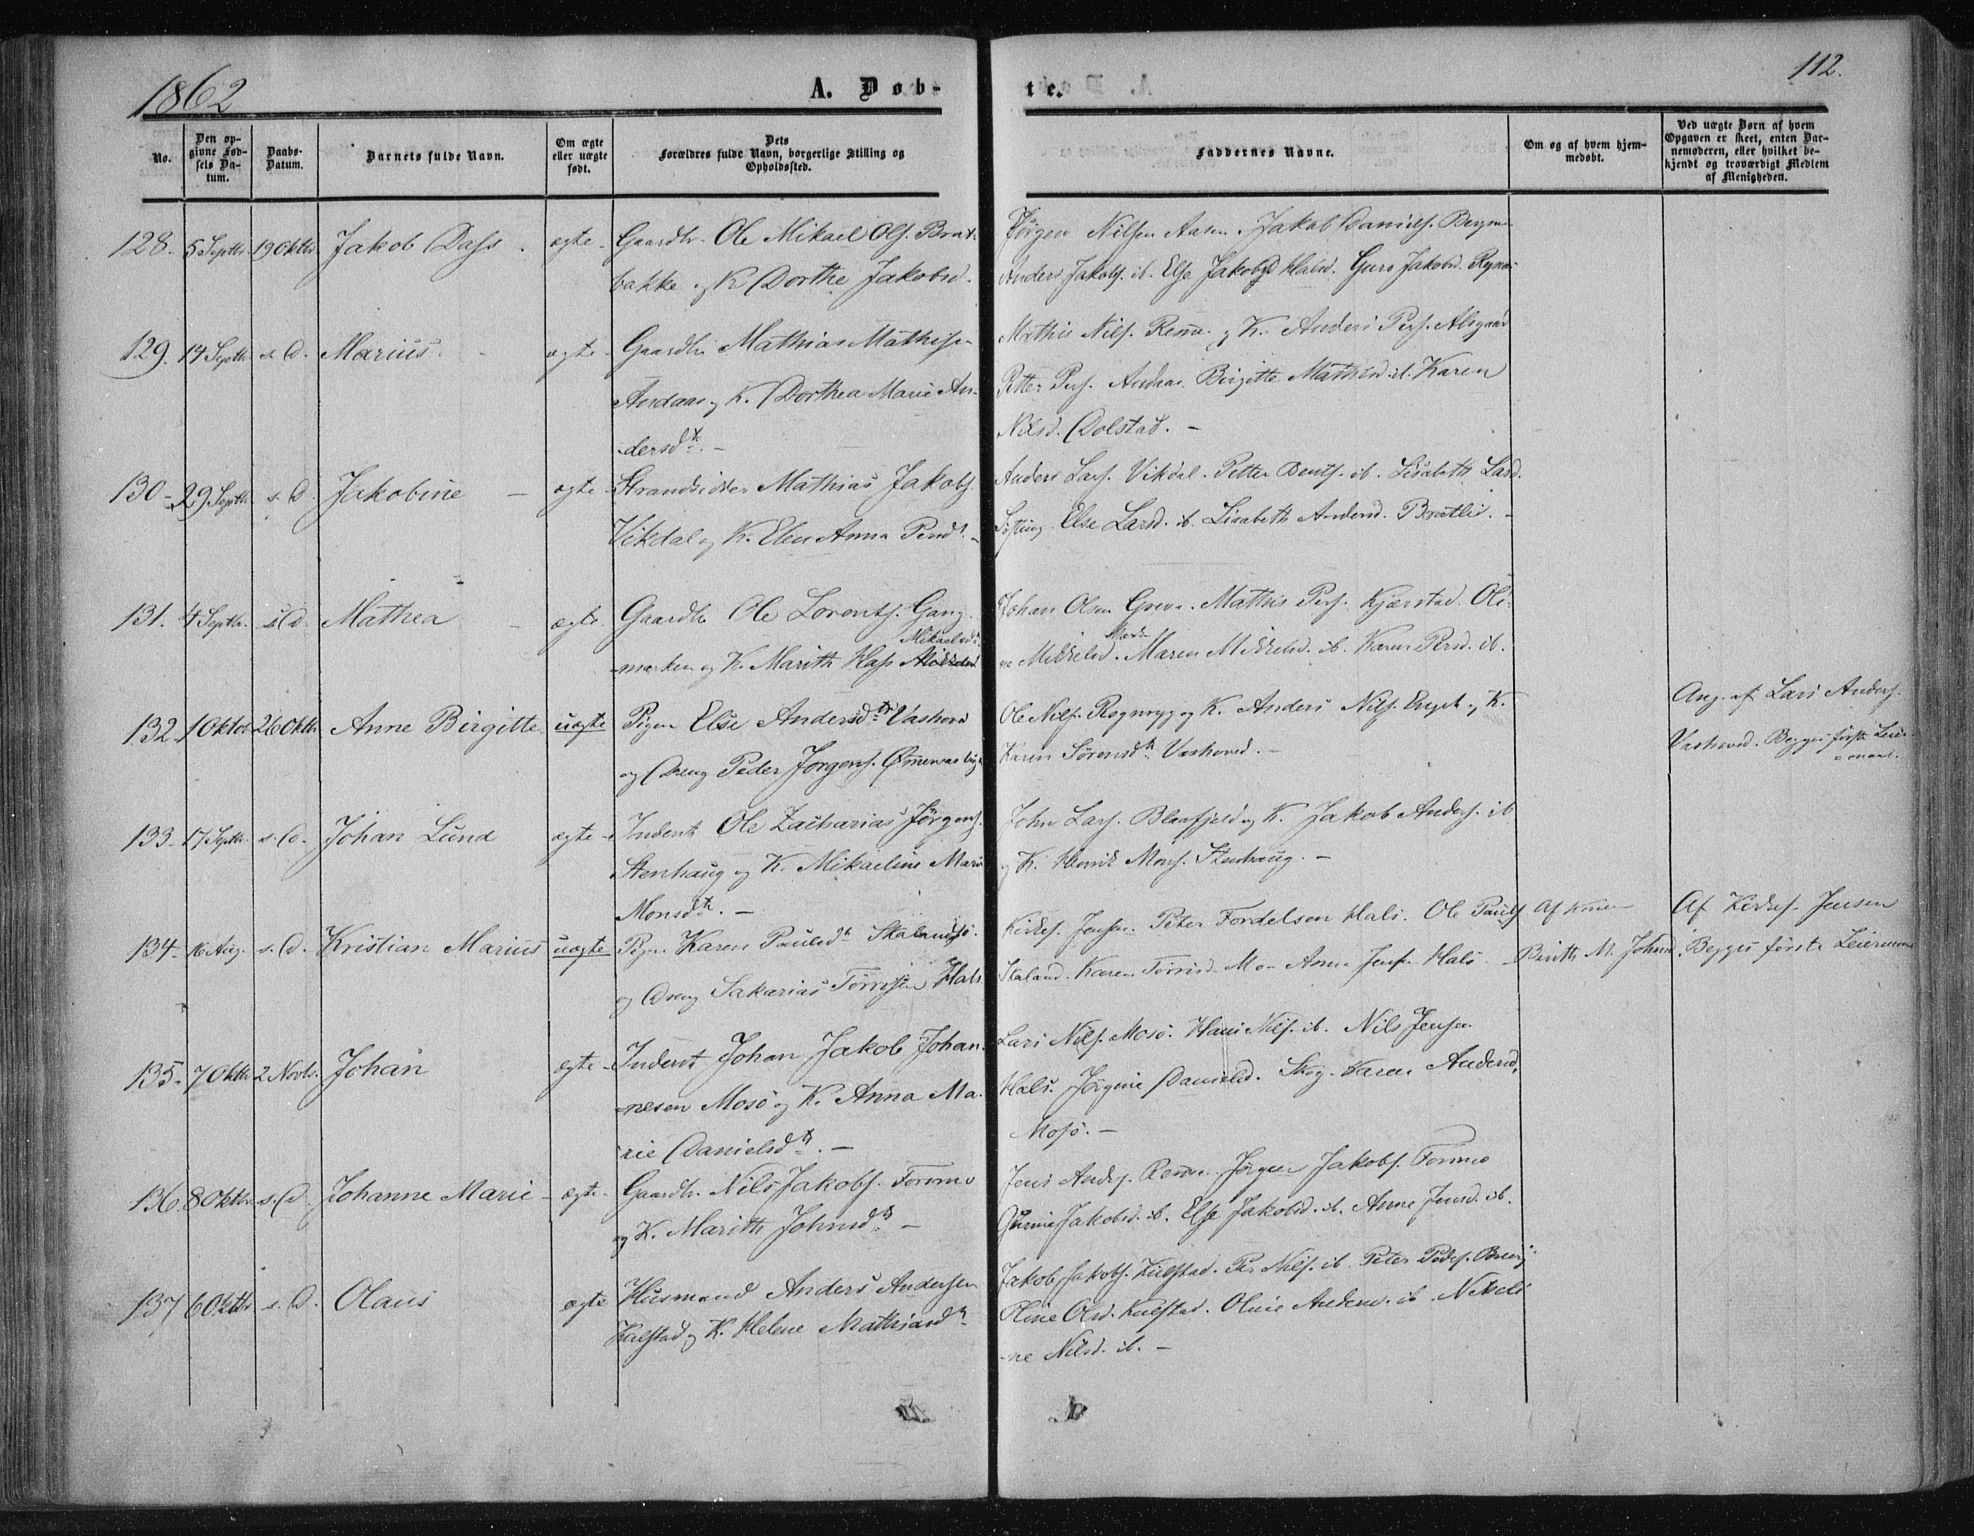 1862
A. Døb-
te.
112.
No.
Den op-
givne Fød-
sels Da-
tum.
Daabs-
Datum.
Barnets fulde Navn.
Om ægte
eller uægte
født.
Dets
Forældres fulde Navn, borgerlige Stilling og
Opholdssted.
Faddernes Navne.
Om og af hvem hjem-
medøbt.
Ved uægte Børn af hvem
Opgaven er skeet, enten Bar-
nemoderen, eller hvilket be-
kjendt og troværdigt Medlem
af Menigheden.
128. 5 Septbr 19 Oktbr Jakob Dass. ægte Gaardbr. Ole Mikael Ols. Brat-
bakke og K. Dorthe Jakobsd.
Jørgen Nilsen Aasen. Jakob Daniels.
Anders Jakobs. ib. Else Jakobsd Halsd. Guro Jakobsd.
129. 14 Septbr s. D. Marius. ægte Gaardbr Mathias Mathis-
Andaas og K. Dorthea Marie An-
dersdtr. -
Mathis Nils. Remn. og K. Anders Pers. Alsgaard
Petter Pers. Andaas. Birgitte Mathisd. ib. Karen
Nilsd. Dolstad. -
130 - 29 Septbr. s. D. Jakobine - ægte Strandsidder Mathias Jakobs.
Vikdal og K. Elen Anna Persdt. -
Anders Lars. Vikdal. Petter Bents. ib. Lisabeth Larsd.
Søfting. Else Larsd. ib. Lisabeth Andersd. Bratli. -
131. 4 Septbr. s. D. Mathea - ægte Gaardbr Ole Lorents. Gang-
Mikaelsdtr
marken og K. Marith Hass
Johan Olsen Greva. Mathis Pers. Kjærstad. Oli-
ne Mikkelsd. Mark. Maren Mikkelsd. ib. Karen Persd. ib.
132. 1 Oktob 26 Oktbr. Anne Birgitte uægte Pigen Else Andersdtr. Vashoved
og Dreng Peder Jørgens.
Ole Nils. Rognryg og K. Anders Nils. og K.
Karen Sørensdtr Vashoved. -
Ang. af Lars Anders.
Vashoved. Begges første Leier-
maal.
133. 17 Septbr. s. D. Johan Lund ægte - Inderst Ole Zacharias Jørgens.
Stenhaug og K. Mikaeline Marie
Monsdtr. -
John Lars. Blaafjeld og K. Jakob Anders. ib
og K. Henrik Mons. Stenhaug. -
134. 16 Aug. s. D. Kristian Marius uægte Pigen Karen Paulsdtr
og Dreng Sakarias Tørrisen Hals.
Kirkes. Jensen. Peter Fordelsen Hals. Ole Pauls.
Skaland. Karen Tørrisd. Mo - Anna Jens. Hals -
Af
Birith M. Johnsd.
Af Kirkes. Jensen
Begges første Leiermaal
135. 7 Oktbr 2 Novbr. Johan ægte - Inderst Johan Jakob Johan-
nesen Mosø og K. Anna Ma-
rie Danielsdtr. -
Lars Nils. Mosø. Hans Nils. ib. Nils Jensen
Hals. Jørgine Danielsd. Skog. Karen Andersd.
Mosø. -
136. 8 Oktbr. s. D. Johanne Marie - ægte - Gaardbr. Nils Jakobs. Formo
og K. Marith Johnsdtr -
Jens Anders. Remn. Jørgen Jakobs. Formo
Jakobsd. ib. Else Jakobsd. ib. Anne Jensd. ib.
137 6 Oktbr s. D. Olaus ægte Husmand Anders Andersen
Kulstad og K. Helene Mathiasdtr
Jakob Jakobs. Kulstad. Per Nils. ib. Peter Peders.
Oline Olsd. Kulstad. Oline Andersd. ib.
ne Nilsd. ib. -